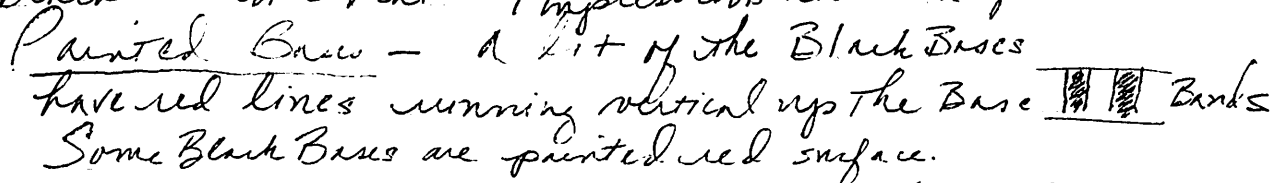 Painted Bases — A lot of the Black Bases
have red lines running vertical up the Base Bands
Some Black Bases are painted red surface.